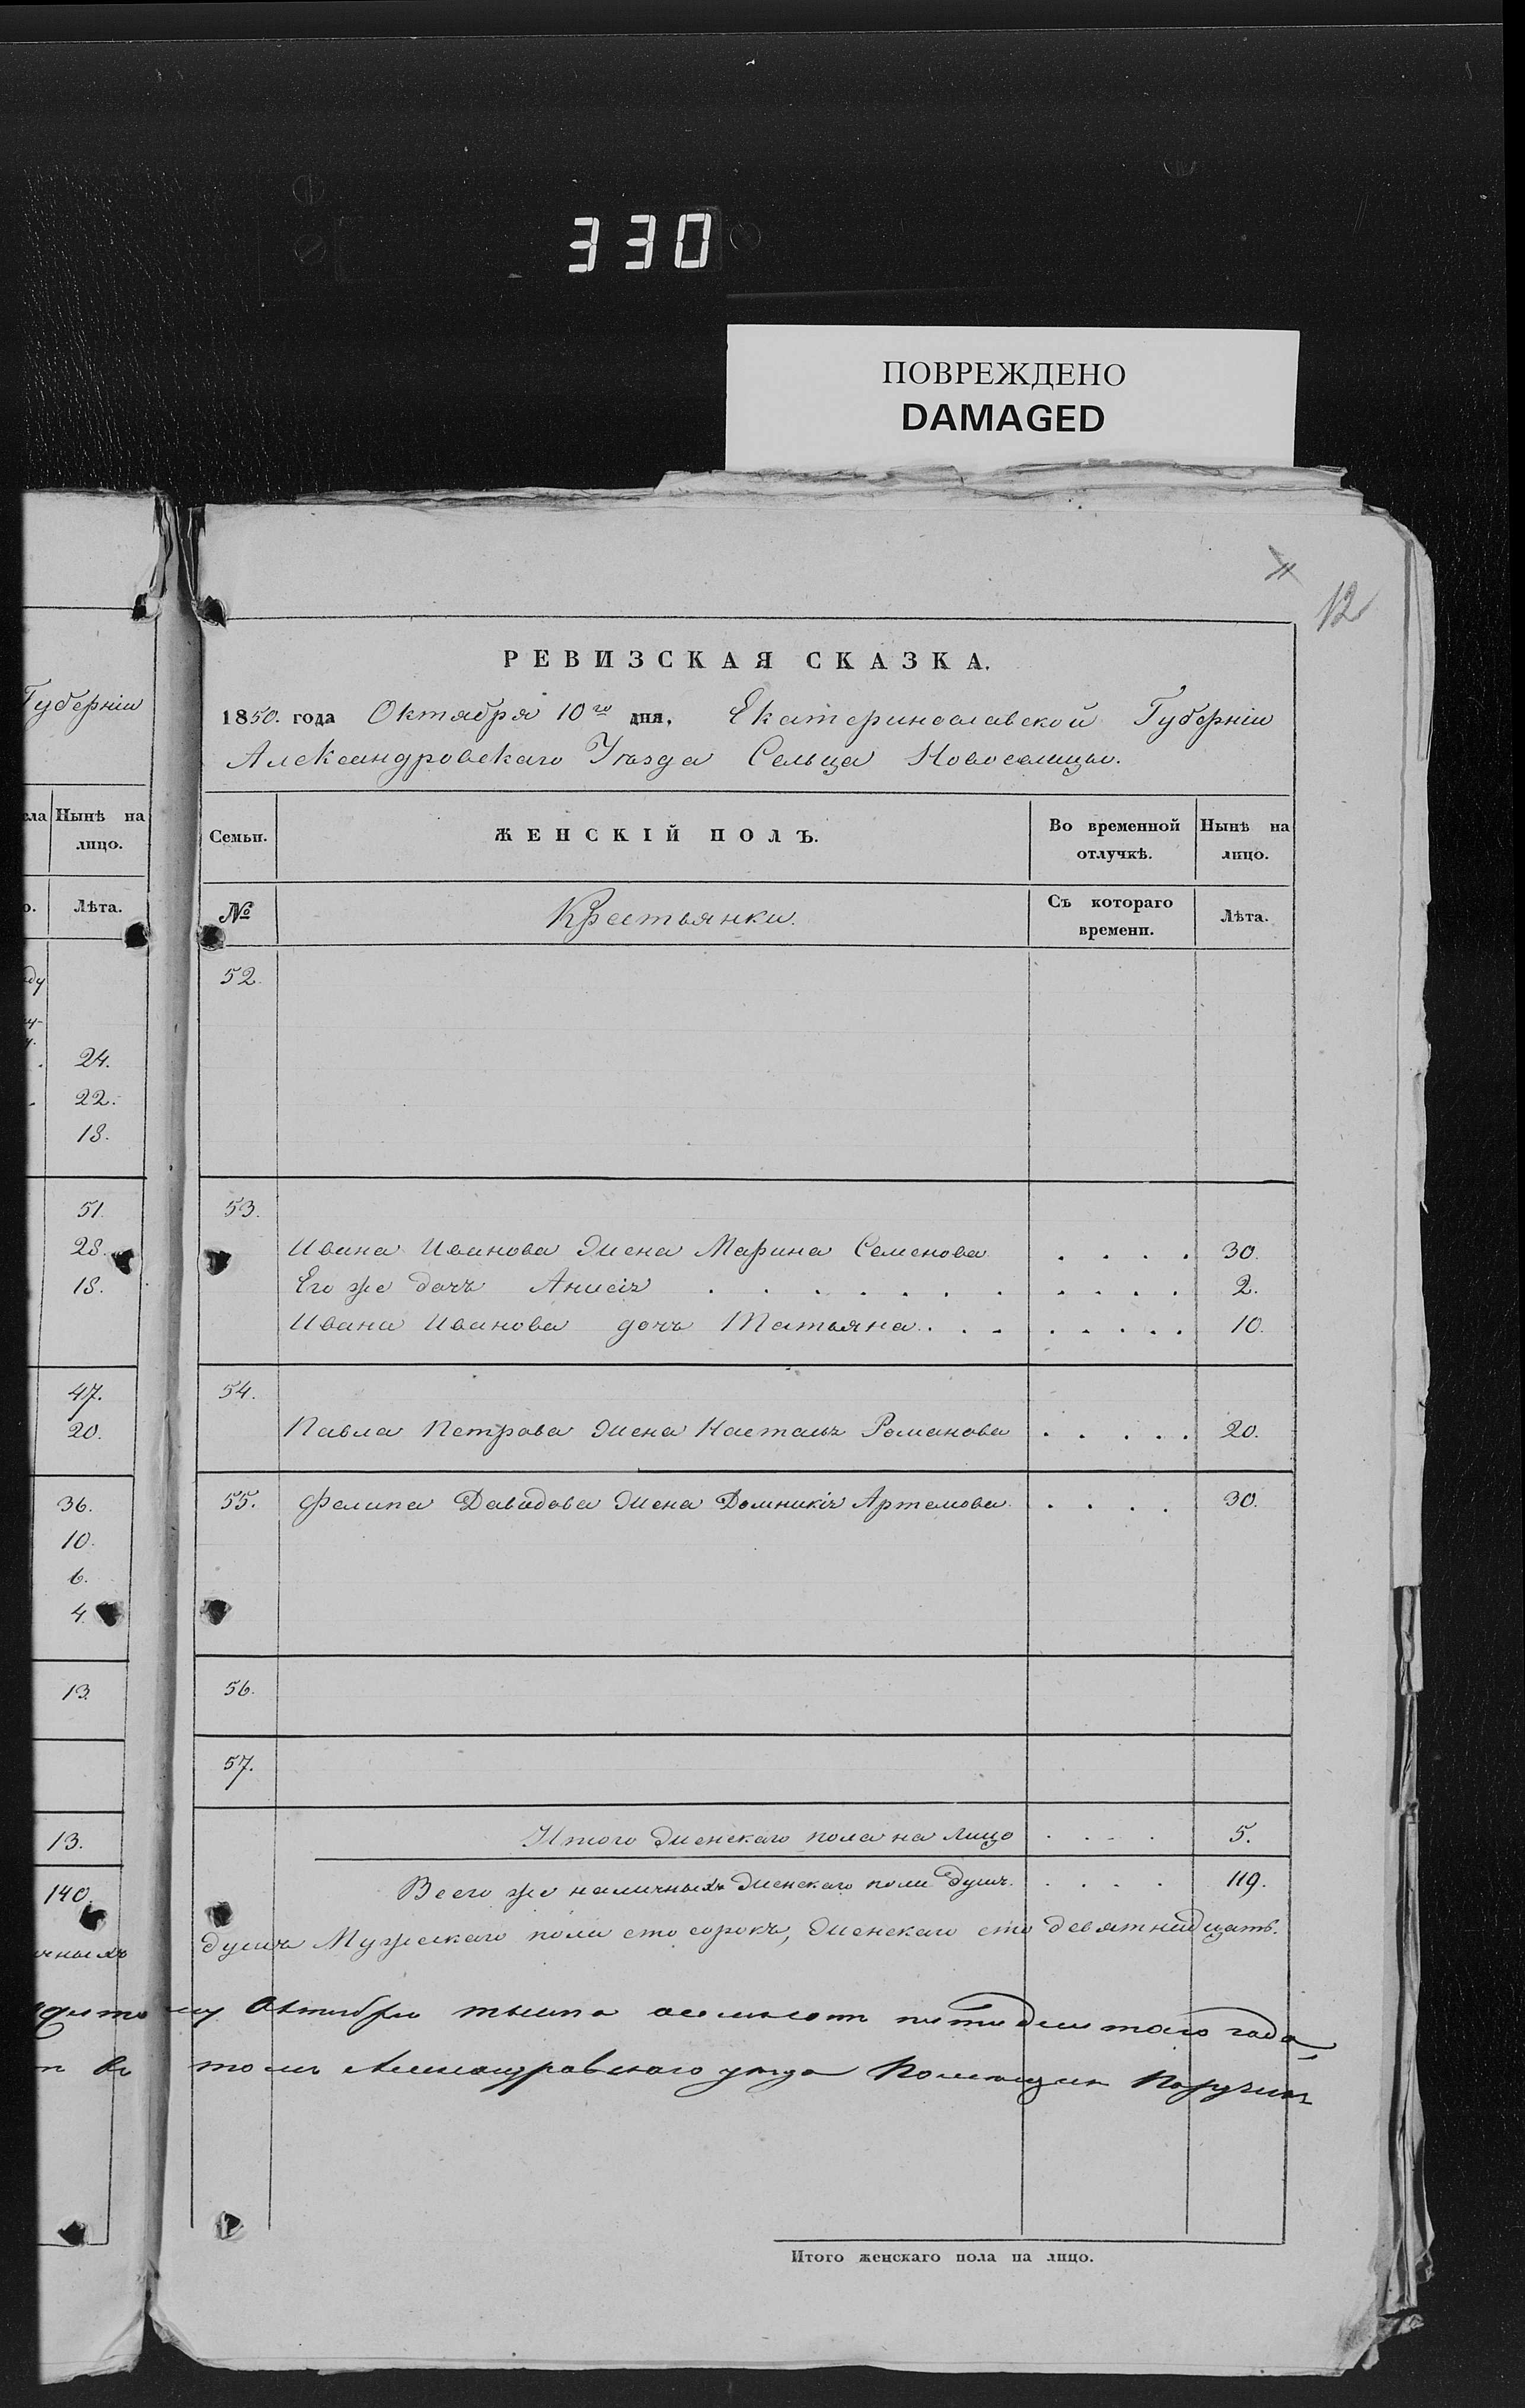 330
ПОВРЕЖДЕНО
DAMAGED
11
12
РЕВИЗСКАЯ СКАЗКА.
1850. года Октября 10го дня, Екатеринославской Губерніи
Александровскаго Уѣзда Сельца Новоселицы.
Семьи. ЖЕНСКІЙ ПОЛЪ. Во временной отлучкѣ. Нынѣ на лицо.
№ Крестьянки. Съ котораго времени. Лѣта.
52.
53.
Ивана Иванова жена Марина Семенова . . . . 30.
Его же дочь Анисія . . . . . . . . . . . 2.
Ивана Иванова дочь Татьяна . . . . . . . . 10.
54.
Павла Петрова жена Настасья Романова . . . . . 20.
55. Филипа Давидова жена Домникія Артемова . . . . 30.
56.
57.
Итого женскаго пола на лицо . . . . 5.
Всего же наличныхъ женскаго пола душъ . . . . 119.
душъ Мужескаго пола сто сорокъ, женскаго сто девятнадцать.
Октября тысяча восемьсотъ пятидесятаго года,
томъ Александровскаго уѣзда Помѣщикъ Поручикъ
Итого женскаго пола на лицо.
Губерніи
Нынѣ на
лицо.
Лѣта.
24.
22.
18.
51.
28.
18.
47.
20.
36.
10.
6.
4.
13.
13.
140.